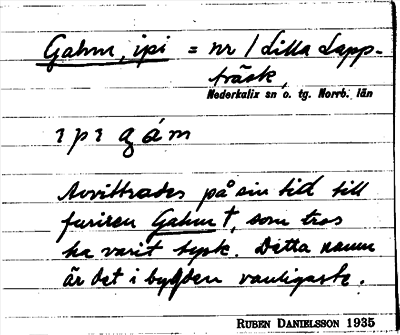 Gahm, ipi = nr 1 Lilla Lapp-
träsk,
Nederkalix sn o. tg. Norrb. län
ıpı gám
Avvittrades på sin tid till
furiren Gahm †, som tros
ha varit tysk. Detta namn
är det i bygden vanligaste.
RUBEN DANIELSSON 1935